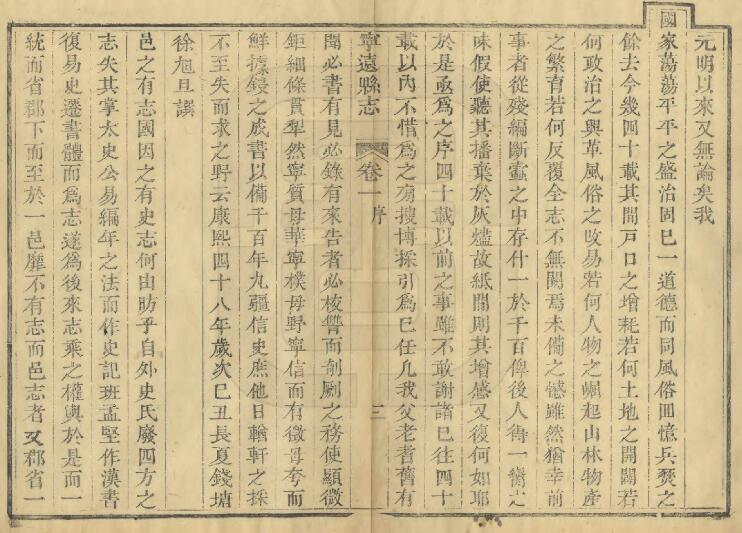 元明以來又無論矣我
國家蕩蕩平平之盛治固已一道德而同風俗回憶兵燹之
餘去今幾四十載其間戸口之增耗若何土地之開闢若
何政治之興革風俗之攺易若何人物之崛起山林物產
之繁育若何反覆全志不無闕焉未備之憾雖然猶幸前
事者從殘編斷蠧之中存什一於千百俾後人得一臠之
味假使聽其播棄於灰燼故紙間則其增感又復何如耶
於是亟爲之序四十載以前之事雖不敢謝諸已往四十
載以內不惜爲之旁搜博採引爲已任凡我父老耆舊有
寧遠縣志 卷一 序 三
聞必書有見必錄有來告者必核讐而剞劂之務使顯微
鉅細條貫犁然寧質毋華寧樸毋野寧信而有徵毋夸而
鮮據鋟之成書以備千百年九疆信史庶他日輶軒之採
不至失而求之野云康熙四十八年歲次已丑長夏錢塘
徐旭旦譔
邑之有志國因之有史志何由昉乎自外史氏廢四方之
志失其掌太史公易編年之法而作史記班孟堅作漢書
復易史遷書體而爲志遂爲後來志乘之權輿於是而一
統而省郡下而至於一邑靡不有志而邑志者又郡省一